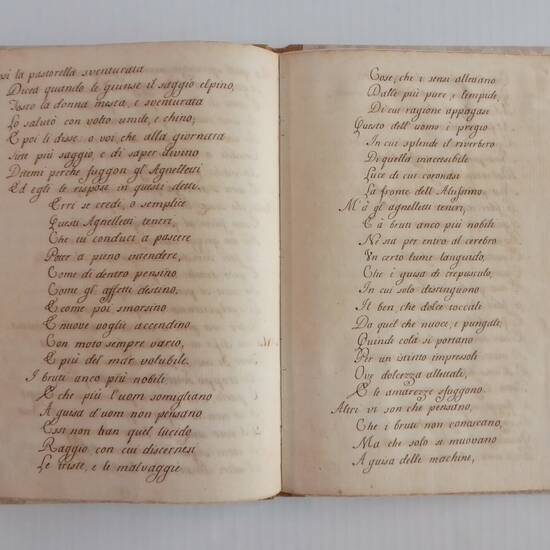 osi la pastorella sventurata
Dicea quando le giunse il saggio elpino,
Tosco la donna mesta, e sventurata
Lo salutó con volto umile, e chino;
E poi li disse o voi, che alla giornata
Siete più saggio, e di saper divino
Ditemi perche fuggon gl' Agnelletti
Ed egli le rispose in questi detti.
Erri se credi, o semplice
Questi Agnelletti teneri,
Che tu conduci a pascere
Poter a pieno intendere,
Come di dentro pensino
Come gl' affetti destino,
E come poi smorsino
E nuove voglie accendino
Con moto sempre vario,
E più del mar volubile.
I bruti anco più nobili
E che più l'uom somigliano
A guisa d'uom non pensano
Essi non han quel lucido
Raggio con cui discernesi
Le triste, e le malvaggie
Cose, che i sensi allettano
Dalle più pure, e limpide,
Di cui ragione appagasi
Questo dell' uomo è pregio
In cui splende il riverbero
Di quella inaccessibile
Luce di cui coronasi
La fronte dell' Altissimo
Mà gl' agnelletti teneri,
E à bruti anco più nobili
Ne sia per entro al cerebro
Un certo lume languido,
Che à guisa di crepusculo,
In cui solo distinguono
Il ben, che dolce toccali
Da quel che nuoce, e pungeli;
Quinde colà si portano
Per un istinto impressoli
Ove dolcezza allettali,
E le amarezze sfuggono.
Altri vi son che pensano,
Che i bruti non conoscano,
Ma che solo si muovano
A guisa delle machine,